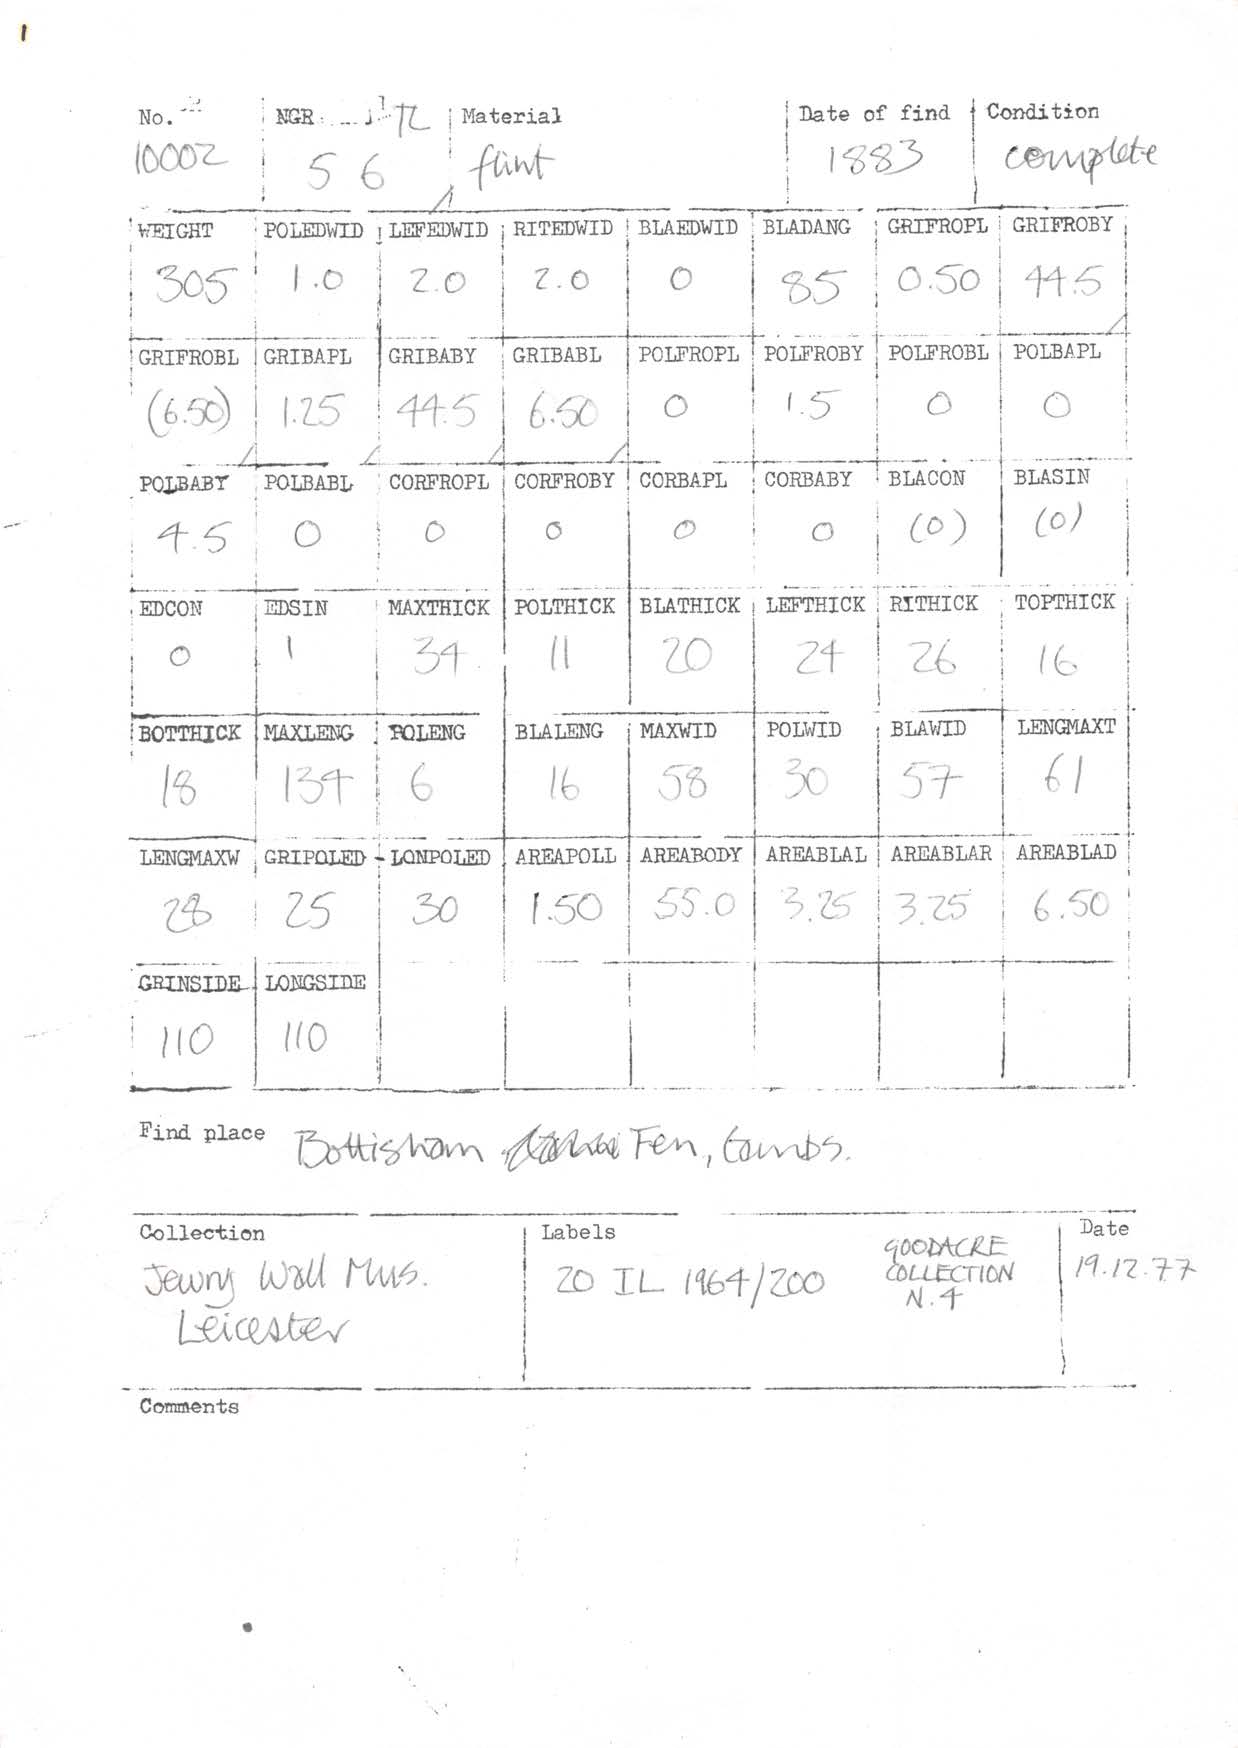 1
No. NGR TL Material Date of find Condition
10002 5 6 flint 1883 complete
WEIGHT POLEDWID LEFEDWID RITEDWID BLAEDWID BLADANG GRIFROPL GRIFROBY
305 1.0 2.0 2.0 0 85 0.50 44.5
GRIFROBL GRIBAPL GRIBABY GRIBABL POLFROPL POLFROBY POLFROBL POLBAPL
(6.50) 1.25 44.5 6.50 0 1.5 0 0
POLBABY POLBABL CORFROPL CORFROBY CORBAPL CORBABY BLACON BLASIN
4.5 0 0 0 0 0 (0) (0)
EDCON EDSIN MAXTHICK POLTHICK BLATHICK LEFTHICK RITHICK TOPTHICK
0 1 34 11 20 24 26 16
BOTTHICK MAXLENG POLENG BLALENG MAXWID POLWID BLAWID LENGMAXT
18 134 6 16 58 30 57 61
LENGMAXW GRIPOLED LONPOLED AREAPOLL AREABODY AREABLAL AREABLAR AREABLAD
28 25 30 1.50 55.0 3.25 3.25 6.50
GRINSIDE LONGSIDE
110 110
Find place Bottisham Fen, Cambs.
Collection Labels Date
Jewry Wall Mus. 20 IL 1964/200 GOODACRE 19.12.77
COLLECTION
N.4
Leicester
Comments